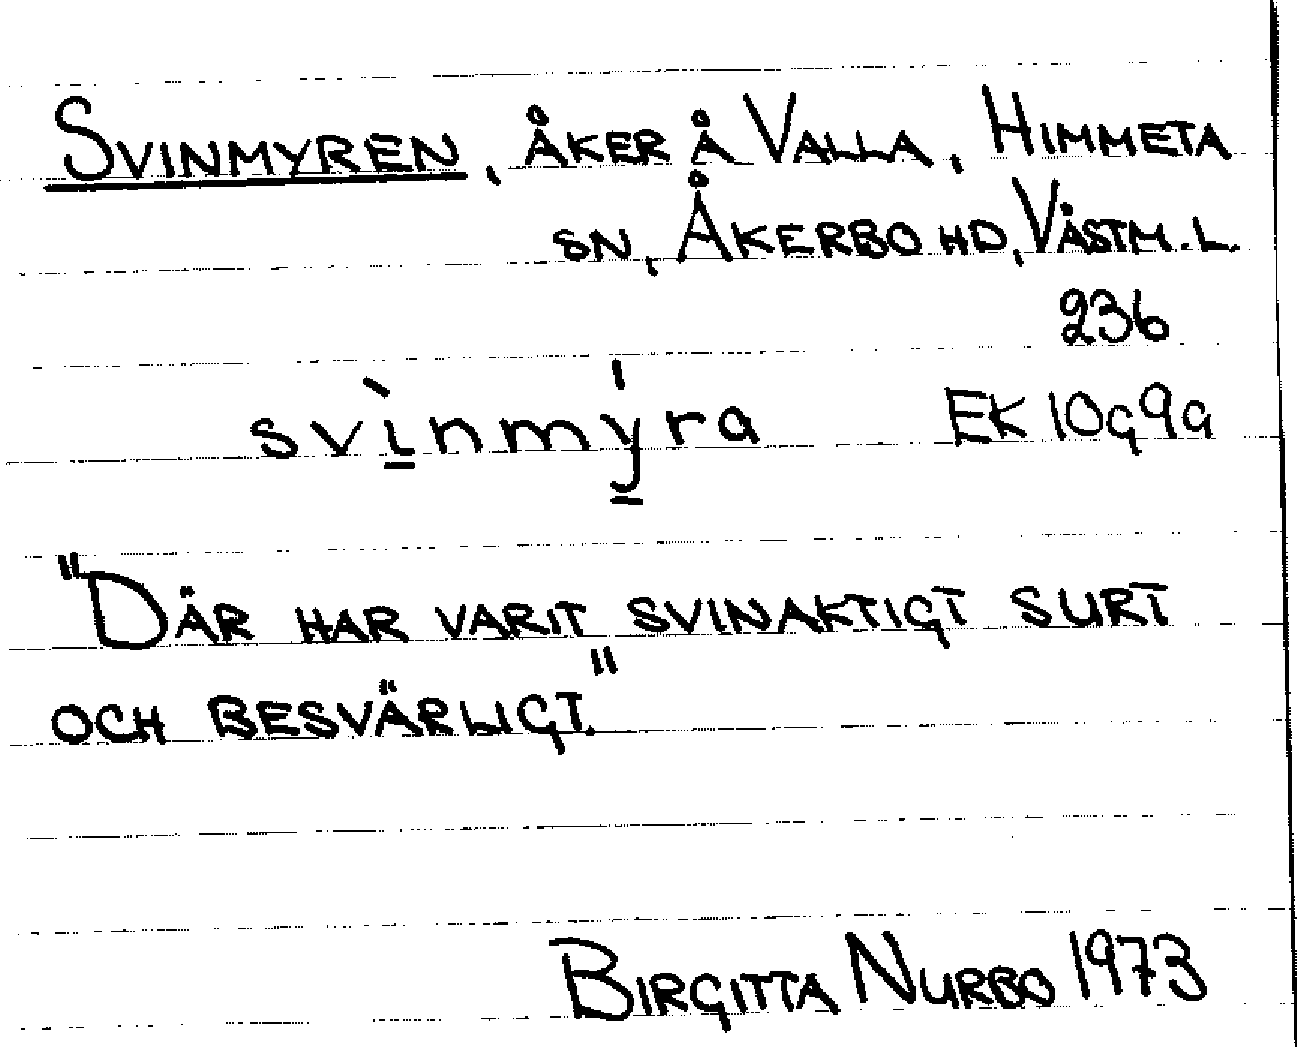 SVINMYREN, ÅKER Å VALLA, HIMMETA
SN, ÅKERBO HD, VÄSTM. L.
236
svì̲nmý̲ra EK 10G9G
"DÄR HAR VARIT SVINAKTIGT SURT
OCH BESVÄRLIGT."
BIRGITTA NURBO 1973